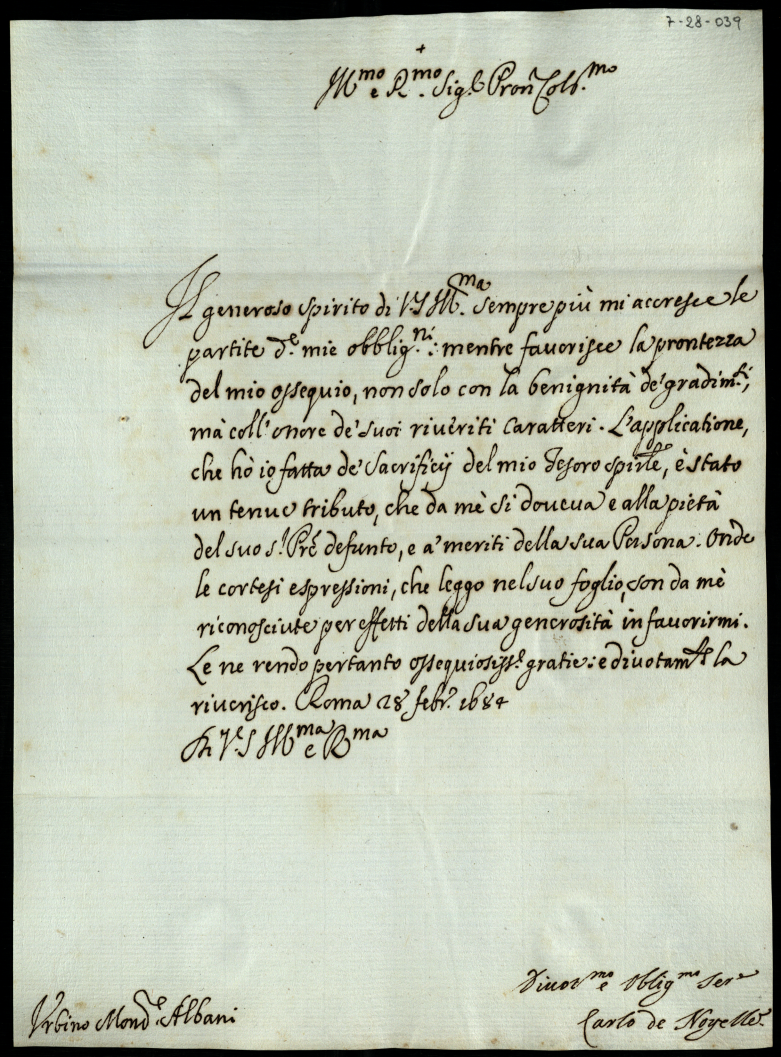 7-28-039
+
Ill.mo e R.mo Sig.r Pron Col.mo
Il generoso spirito di V.S Ill.ma sempre più mi accresce le
partite d.e mie obblig.ni: mentre favorisce la prontezza
del mio ossequio, non solo con la benignità de' gradim.ti,
mà coll'onore de' suoi riveriti Caratteri. L'applicatione,
che hò io fatta de' Sacrificij del mio Tesoro spirle, è stato
un tenue tributo, che da mè si doveva e alla pietà
del suo s.r Pre defunto, e a' meriti della sua Persona. Onde
le cortesi espressioni, che leggo nel suo foglio, son da mè
riconosciute per effetti della sua generosità in favorirmi.
Le ne rendo pertanto ossequiosiss.e gratie: e divotam.te la
riverisco. Roma 28 febr. 1684
Di V.S Ill.ma e R.ma
Divot.mo e Oblig.mo Ser.e
Urbino Mons.e Albani
Carlo de Noyelle.